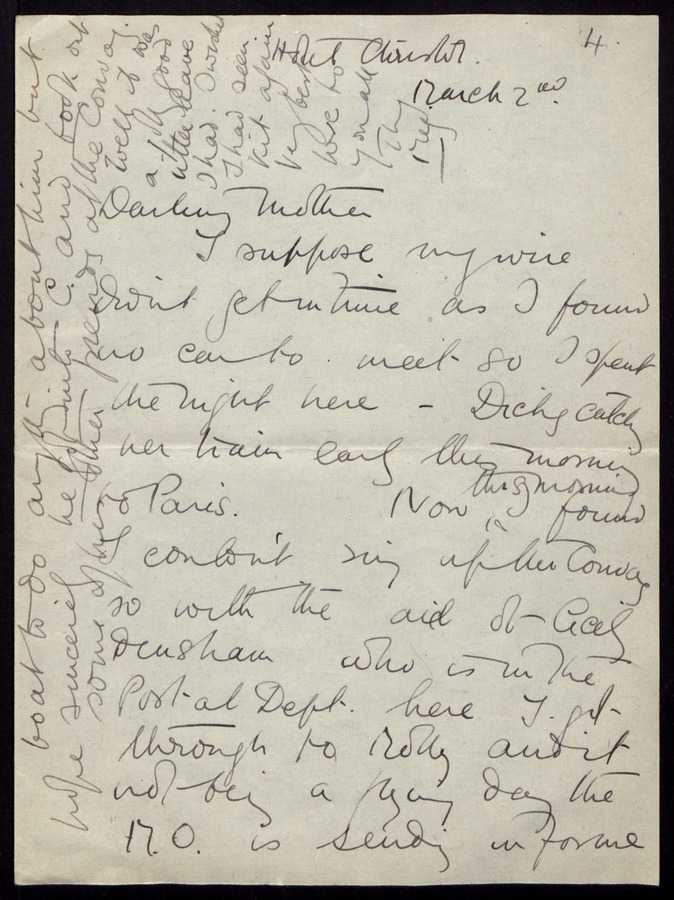 4.
Hotel Christol.
March 2nd.
Darling Mother
I suppose my wire
didn't get in time as I found
no car to meet so I spent
the night here - Dicky catching
her train early this morning
to Paris. Now this morning I found
I couldn't ring up the Convoy
so with the aid of Cecily
Densham who is in the
Postal Dept. here I got
through to Molly and it
not being a flying day the
M.O. is sending in for me
boat to do anything about him but
hope sincerely he
C. and book out
some of her other friends at the Convoy.
Well it was
a jolly good
little leave
I had. I wish
I had seen
Kit again
Very best
love to
you all